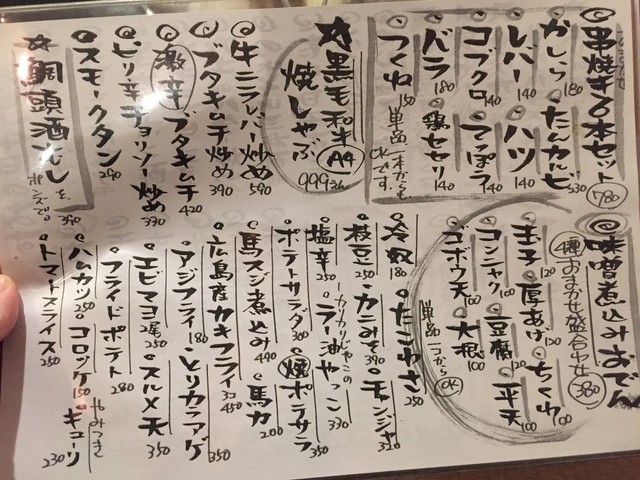 ◎串焼き6本セット 780
かしら 180
レバー 140
コブクロ 140
バラ 180
つくね 150
たんカルビ 530
ハツ 140
てっぽう 140
鶏セセリ 140
単品一本からもOKです。
☆黒毛和牛A4
焼しゃぶ 999
牛ニラレバー炒め 590
ブタキムチ炒め 390
激辛ブタキムチ 420
ピリ辛チョリソー炒め 390
スモークタン 290
☆鯛頭酒むしを、ポンズで。 390
◎味噌煮込みおでん
4種おまかせ盛合わせ 380
玉子 120
厚あげ 120
ちくわ 100
コンニャク 100
豆腐 120
平天 100
ゴボウ天 100
大根 100
単品一つからOK
冷奴 180
たこわさ 250
枝豆 250
カニみそ 390
チャンジャ 320
塩辛 250
カリカリじゃこのラー油やっこ 330
ポテトサラダ 300
焼ポテサラ 350
馬スジ煮込み 490
馬カ 200
広島産カキフライ 3コ 450
アジフライ 180
とりカラアゲ 350
エビマヨ 2尾 250
スルメ天 350
フライドポテト 280
ハムカツ 250
コロッケ 150
やみつきキューリ 230
トマトスライス 250